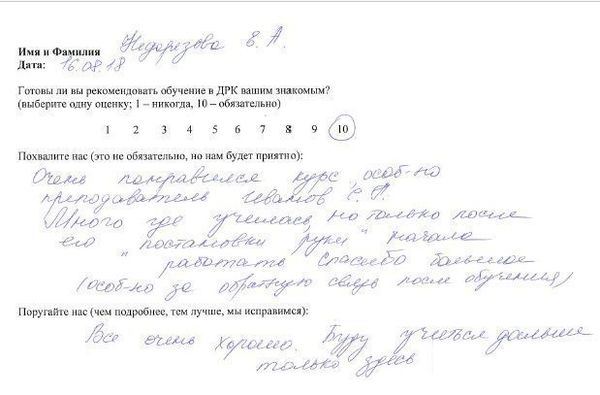 Имя и Фамилия Недорезова Е. А.
Дата: 16.08.18
Готовы ли вы рекомендовать обучение в ДРК вашим знакомым?
(выберите одну оценку; 1 – никогда, 10 – обязательно)
1 2 3 4 5 6 7 8 9 10
Похвалите нас (это не обязательно, но нам будет приятно):
Очень понравился курс, особ-но
преподаватель Иванов С. А.
Много где училась, но только после
его "постановки руки" начала
работать Спасибо большое
(особ-но за обратную связь после обучения)
Поругайте нас (чем подробнее, тем лучше, мы исправимся):
Все очень хорошо. Буду учиться дальше
только здесь